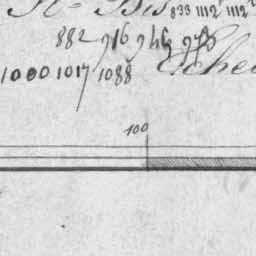 N° Bis 833 1112 1112
882 916 946 976
1000 1017 1088 Echel
100